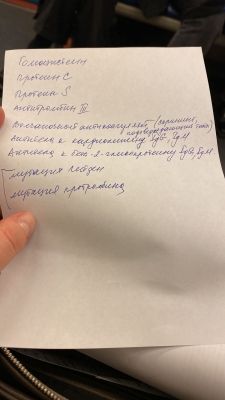 Гомоцистеин
Протеин С
Протеин S
Антитромбин III
Волчаночный антикоагулянт (скрининг,
подтверждающий тест)
Антитела к кардиолипину IgG, IgM
Антитела к бета-2-гликопротеину IgG, IgM
мутация Лейден
мутация протромбина